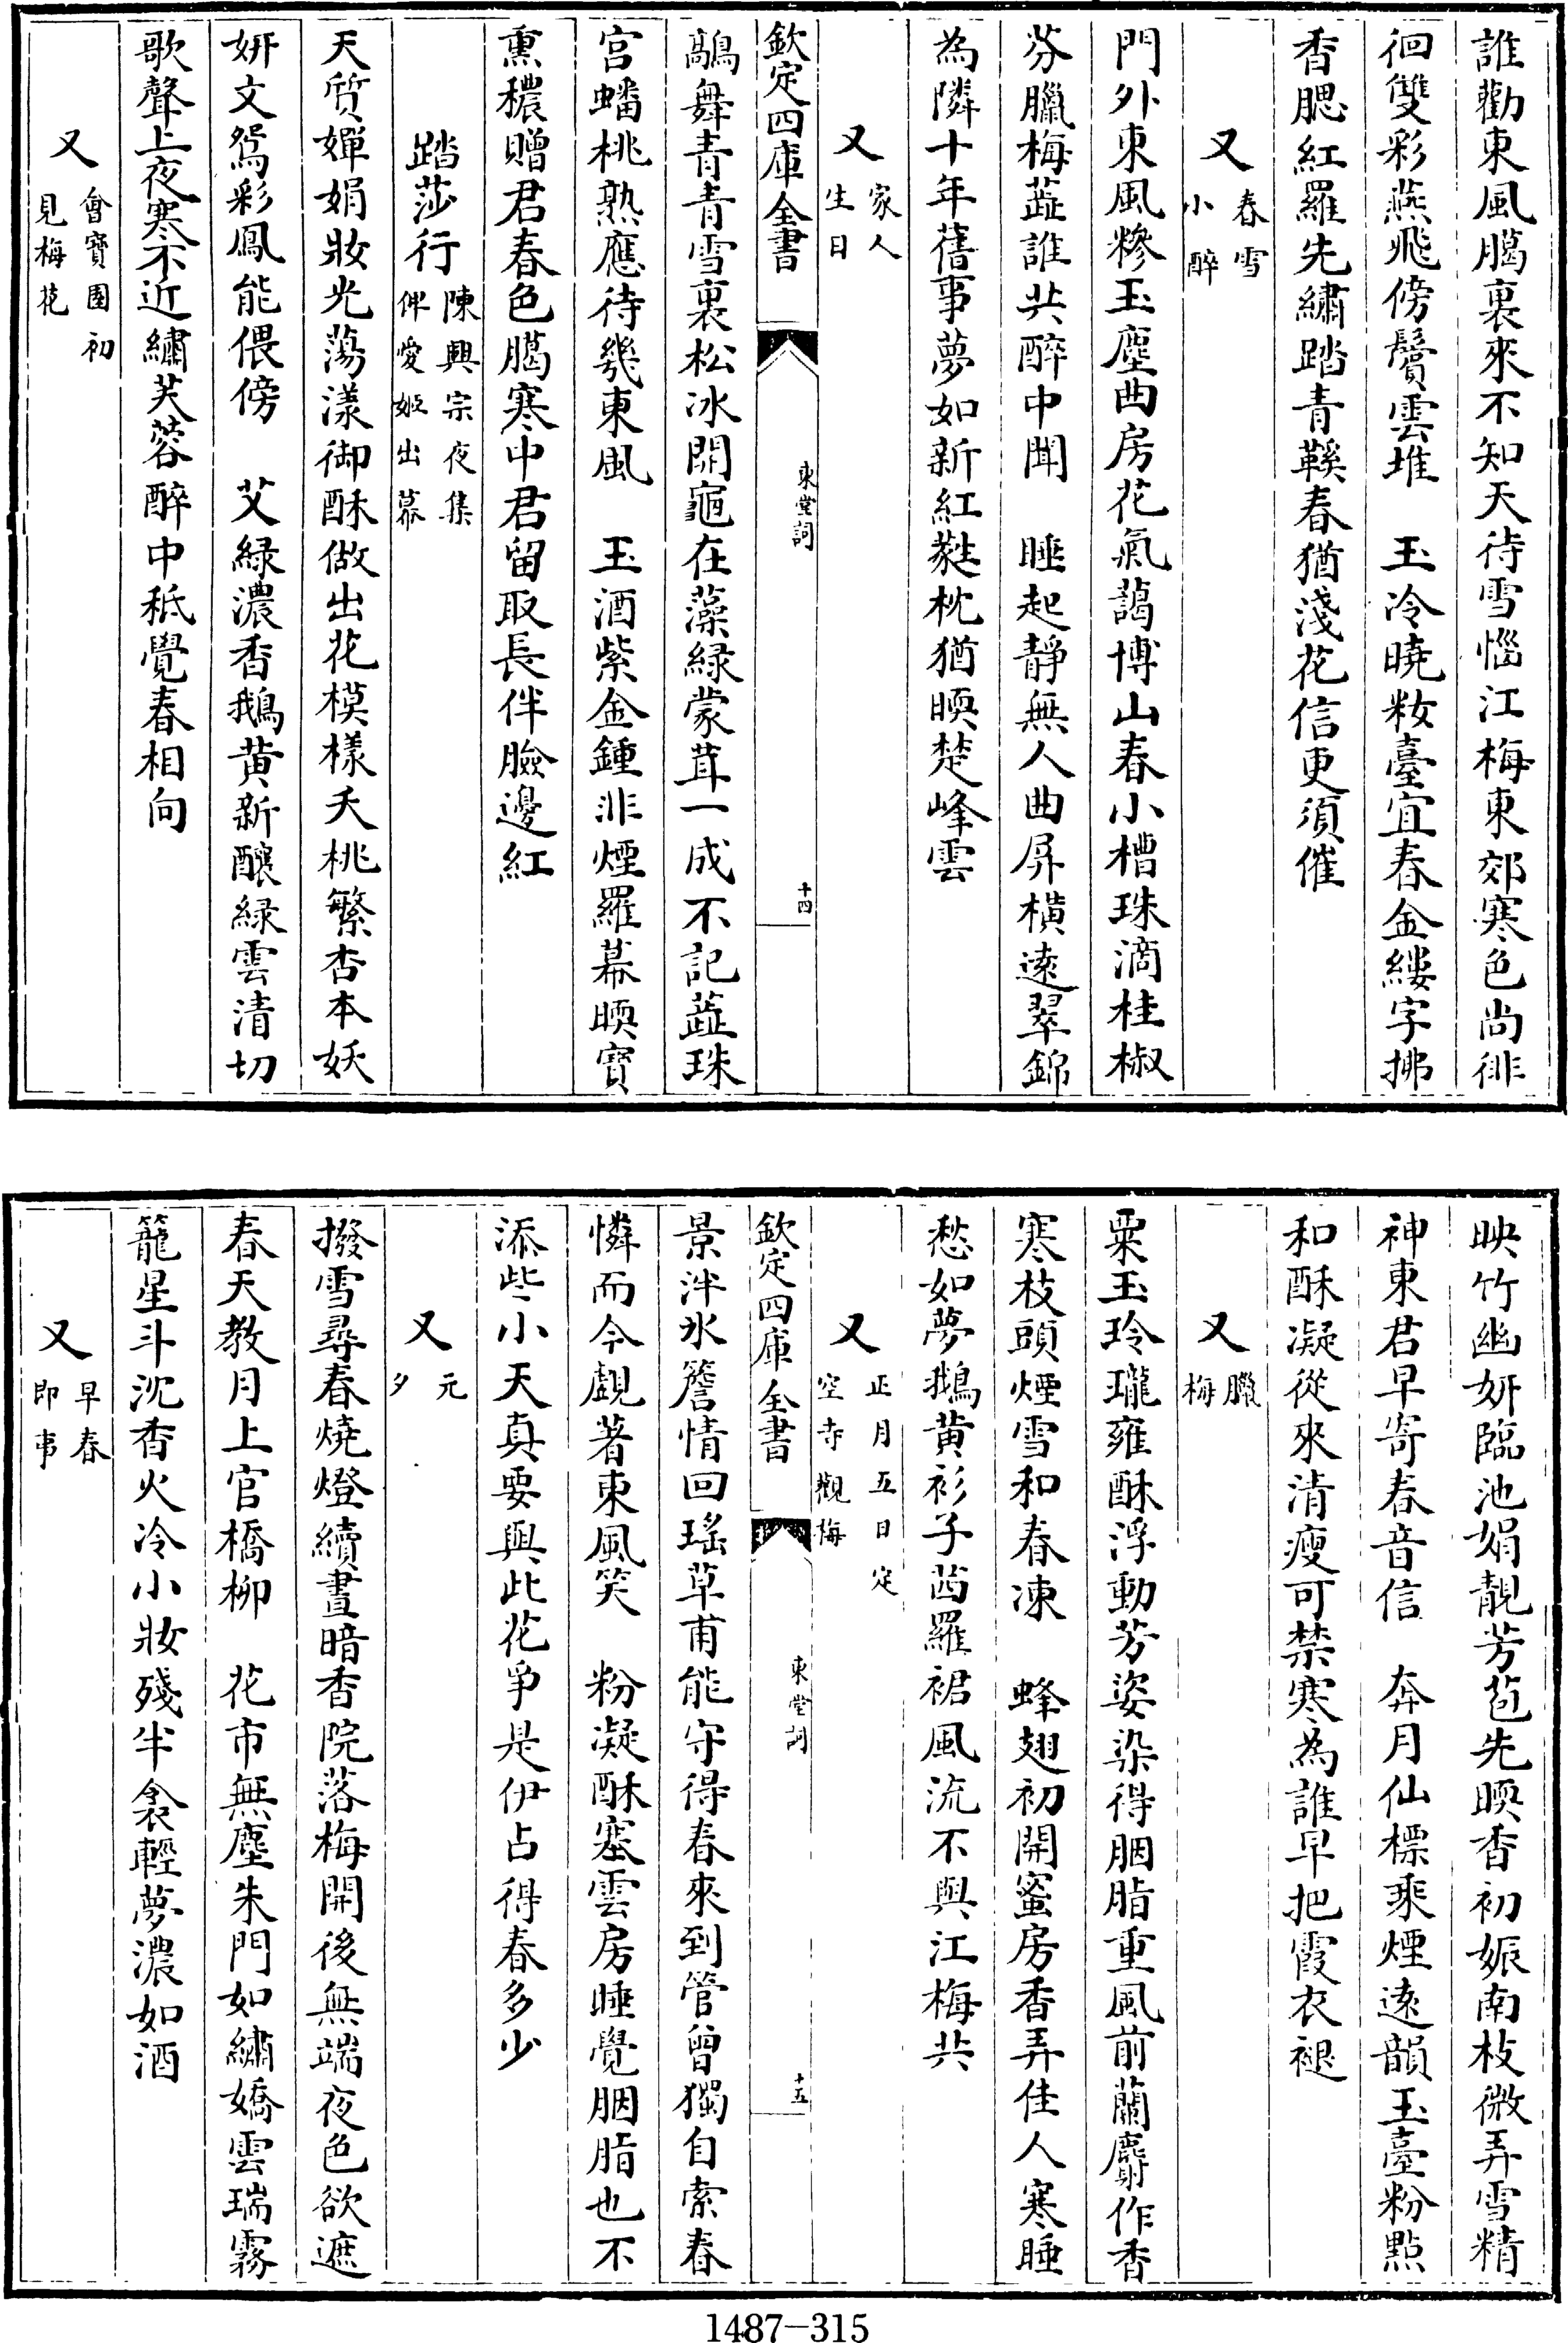 誰勸東風臈裏來不知天待雪惱江梅東郊寒色尚徘
徊雙彩燕飛傍鬢雲堆　玉冷曉粧臺宜春金縷字拂
香腮紅羅先繡踏青鞵春猶淺花信更須催
又春雪小醉
門外東風糝玉塵曲房花氣藹博山春小槽珠滴桂椒
芬臘梅蘂誰共醉中聞　睡起靜無人曲屏橫遠翠錦
為隣十年舊事夢如新紅蕤枕猶暖楚峰雲
又家人生日
欽定四庫全書　東堂詞　十四
鷸舞青青雪裏松冰開龜在藻綠蒙茸一成不記蘂珠
宮蟠桃熟應待幾東風　玉酒紫金鍾非煙羅幕暖寶
熏穠贈君春色臈寒中君留取長伴臉邊紅
踏莎行陳興宗夜集伴愛姬出幕
天質嬋娟妝光蕩漾御酥做出花模樣夭桃繁杏本妖
妍文鴛彩鳳能偎傍　艾綠濃香鵝黃新釀緑雲清切
歌聲上夜寒不近繡芙蓉醉中秪覺春相向
又會寶園初見梅花
映竹幽妍臨池娟靚芳苞先暖香初娠南枝微弄雪精
神東君早寄春音信　奔月仙標乘煙遠韻玉臺粉點
和酥凝從來清瘦可禁寒為誰早把霞衣褪
又臘梅
粟玉玲瓏雍酥浮動芳姿染得胭脂重風前蘭麝作香
寒枝頭煙雪和春凍　蜂翅初開蜜房香弄佳人寒睡
愁如夢鵝黃衫子茜羅裙風流不與江梅共
又正月五日定空寺觀梅
欽定四庫全書　東堂詞　十五
景泮氷簷情回瑤草甫能守得春來到管曾獨自索春
憐而今覰著東風笑　粉凝酥塞雲房睡覺胭脂也不
添些小天真要與此花爭是伊占得春多少
又元夕
撥雪尋春燒燈續晝暗香院落梅開後無端夜色欲遮
春天教月上官橋柳　花市無塵朱門如繡嬌雲瑞霧
籠星斗沈香火冷小妝殘半衾輕夢濃如酒
又早春即事
1487-315